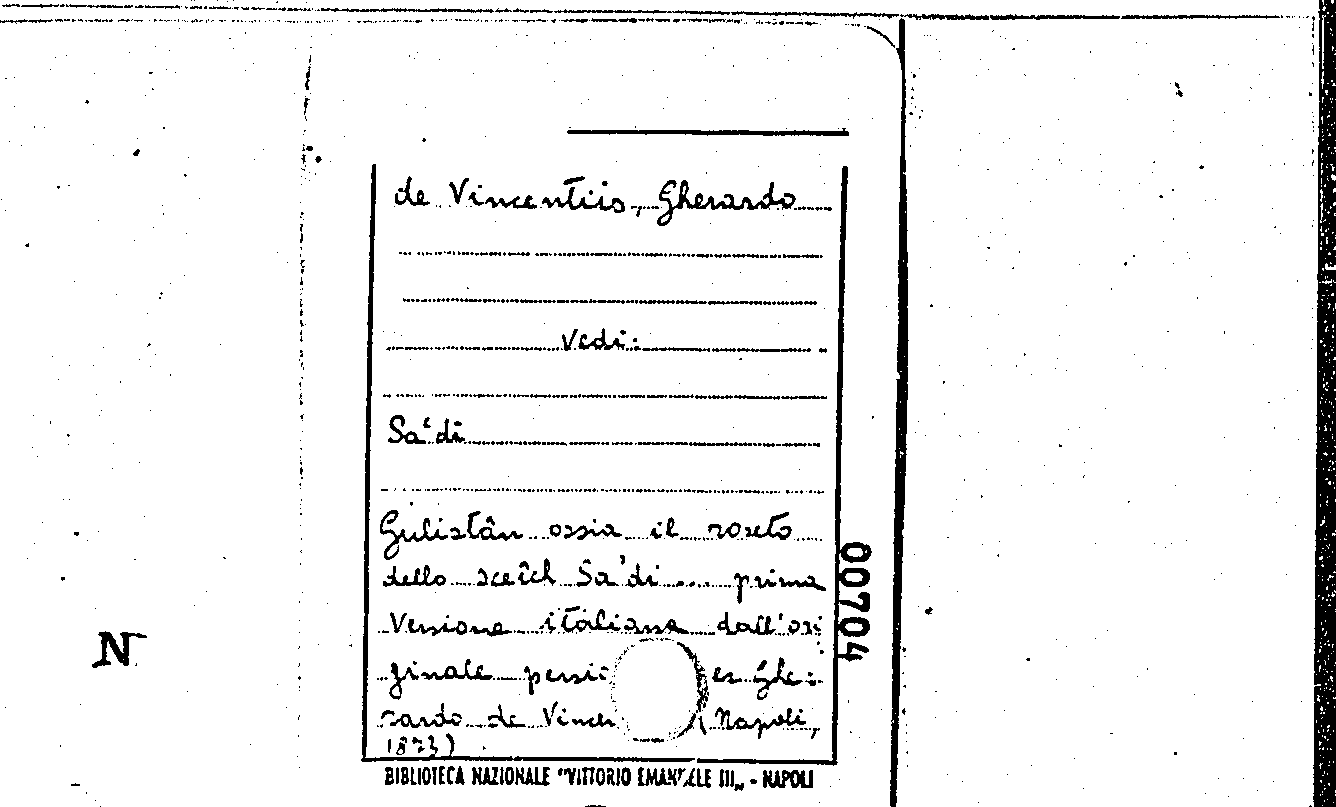 de Vincentiis, Gherardo
Vedi:
Sa'di
Gulistân ossia il roseto
dello sceîch Sa'di... prima
Versione italiana dall'ori
ginale persi es Ghe:
rardo de Vincen (Napoli,
1873)
00704
N
BIBLIOTECA NAZIONALE "VITTORIO EMANUELE III„ - NAPOLI